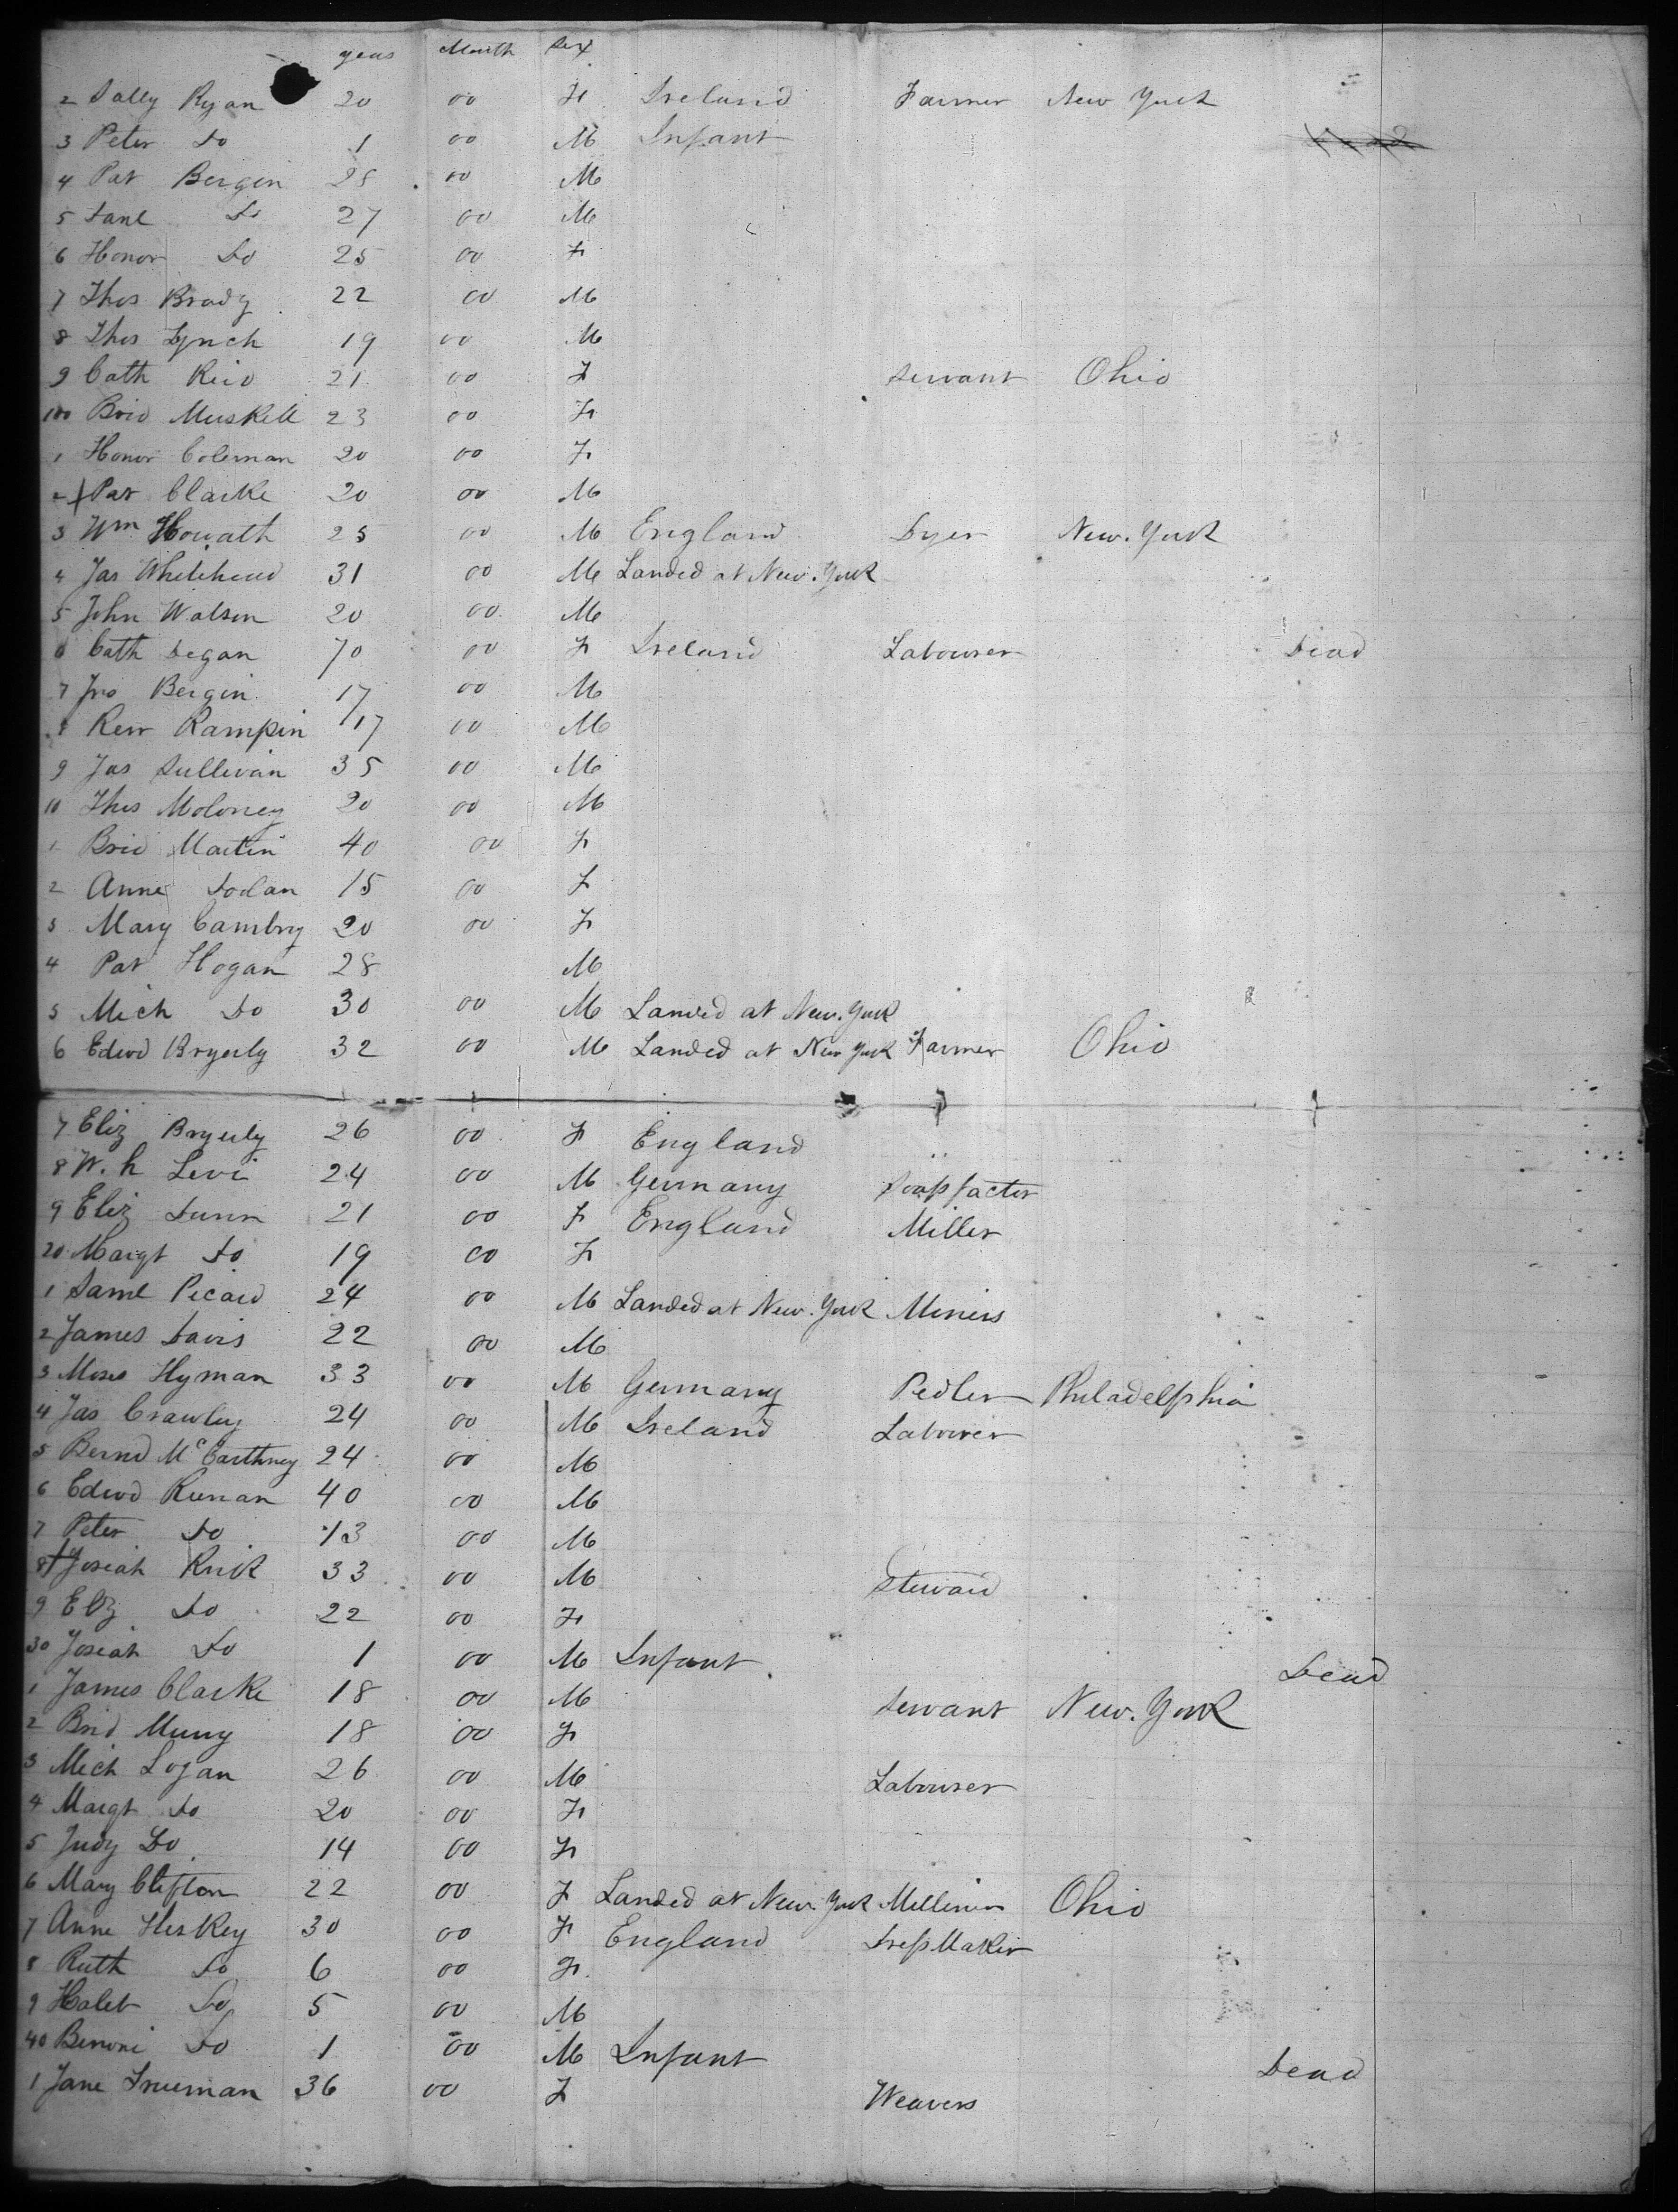 years Month Sex
2 Sally Ryan 20 00 F Ireland Farmer New York
3 Peter Do 1 00 M Infant
4 Pat Bergin 28 00 M
5 Danl Do 27 00 M
6 Honor Do 25 00 F
7 Thos Brady 22 00 M
8 Thos Lynch 19 00 M
9 Cath Reid 21 00 F Servant Ohio
100 Brid Muskell 23 00 F
1 Honor Coleman 20 00 F
2 Pat Clarke 20 00 M
3 Wm Howath 25 00 M England Dyer New. York
4 Jas Whitehead 31 00 M Landed at New. York
5 John Watson 20 00 M
6 Cath Degan 70 00 F Ireland Labourer Dead
7 Jno Bergin 17 00 M
8 Rew Rampin 17 00 M
9 Jas Sullivan 35 00 M
10 Thos Moloney 20 00 M
1 Brid Martin 40 00 F
2 Anne Dodan 15 00 F
3 Mary Cambry 20 00 F
4 Pat Hogan 28 M
5 Mich Do 30 00 M Landed at New. York
6 Edwd Bryerly 32 00 M Landed at New York Farmer Ohio
7 Eliz Bryerly 26 00 F England
8 W. h Levi 24 00 M Germany Soap factor
9 Eliz Dunn 21 00 F England Miller
20 Margt Do 19 00 F
1 Saml Picard 24 00 M Landed at New. York Miners
2 James Davis 22 00 M
3 Moses Hyman 33 00 M Germany Pedler Philadelphia
4 Jas Crawley 24 00 M Ireland Labourer
5 Bernd McCarthney 24 00 M
6 Edwd Kernan 40 00 M
7 Peter Do 13 00 M
8 Josiah Kirk 33 00 M Steward
9 Eliz Do 22 00 F
30 Josiah Do 1 00 M Infant Dead
1 James Clarke 18 00 M Servant New. York
2 Brid Murry 18 00 F
3 Mich Logan 26 00 M Labourer
4 Margt Do 20 00 F
5 Judy Do 14 00 F
6 Mary Clifton 22 00 F Landed at New. York Milliner Ohio
7 Anne Heskey 30 00 F England Dress Maker
8 Ruth Do 6 00 F
9 Halet Do 5 00 M
40 Benoni Do 1 00 M Infant Dead
1 Jane Trueman 36 00 F Weavers